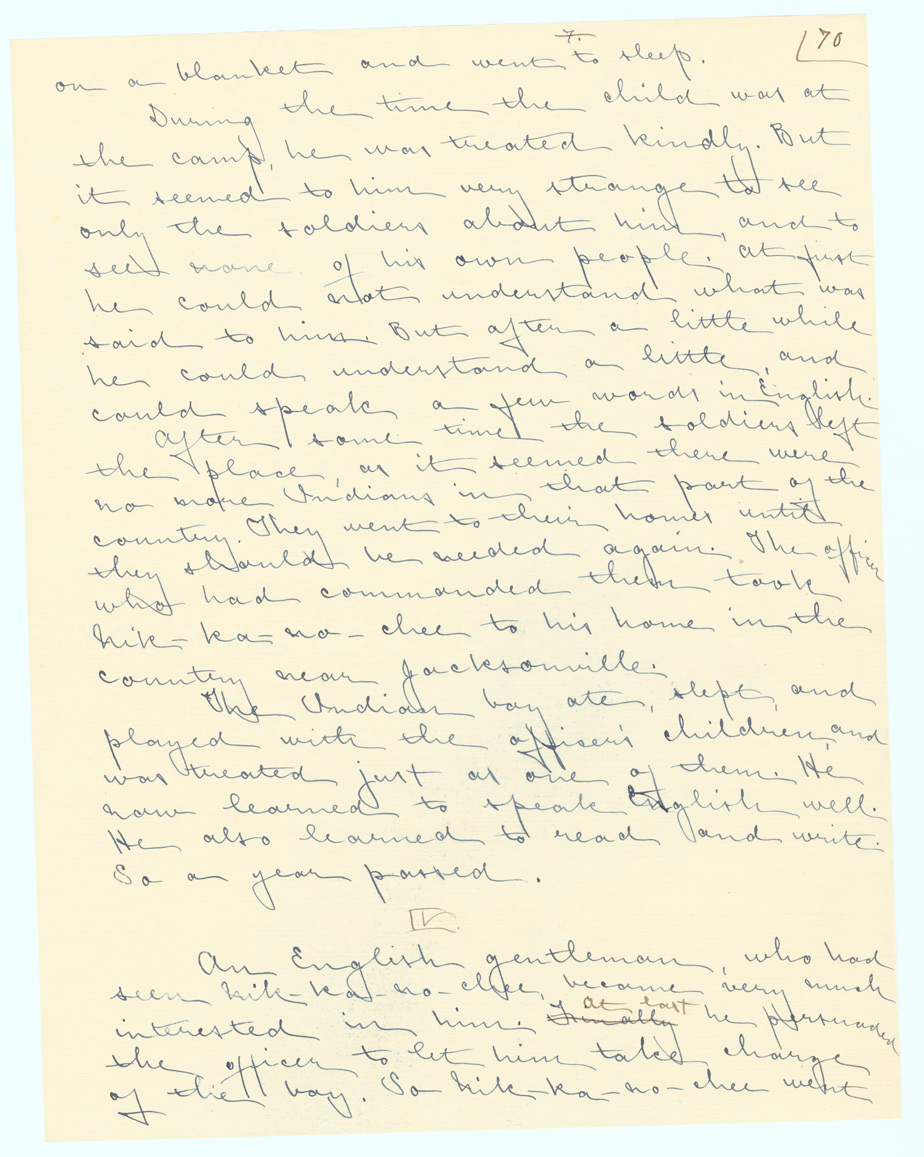 7.
70
on a blanket and went to sleep.
During the time the child was at
the camp, he was treated kindly. But
it seemed to him very strange to see
only the soldiers about him, and to
see none of his own people. At first
he could not understand what was
said to him. But after a little while
he could understand a little, and
could speak a few words in English.
After some time the soldiers left
the place, as it seemed there were
no more Indians in that part of the
country. They went to their homes until
they should be needed again. The officer
who had commanded them took
Nik-ka-no-chee to his home in the
country near Jacksonville.
The Indian boy ate, slept, and
played with the officer's children, and
was treated just as one of them. He
now learned to speak English well.
He also learned to read and write.
So a year passed.
IV
An English gentleman, who had
seen Nik-ka-no-chee, became very much
interested in him. Finally at last he persuaded
the officer to let him take charge
of the boy. So Nik-ka-no-chee went